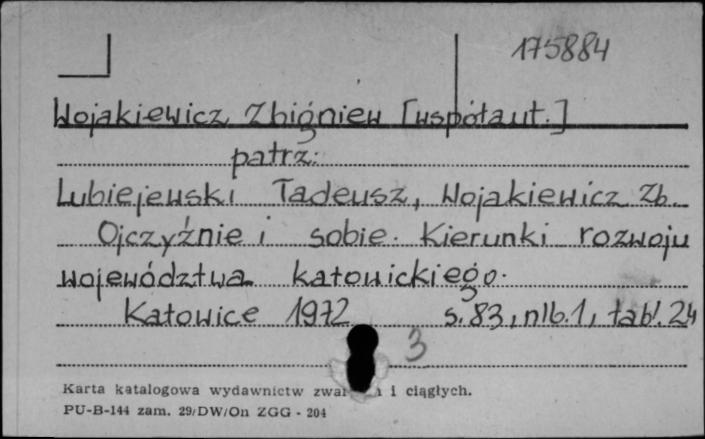 175884
Wojakiewicz Zbigniew [współaut.]
patrz:
Lubiejewski Tadeusz, Wojakiewicz Zb.
Ojczyźnie i sobie. Kierunki rozwoju
województwa katowickiego.
Katowice 1972 s. 83, nlb. 1, tabl. 24
3
Karta katalogowa wydawnictw i ciągłych.
PU-B-144 zam. 29/DW/On ZGG - 204